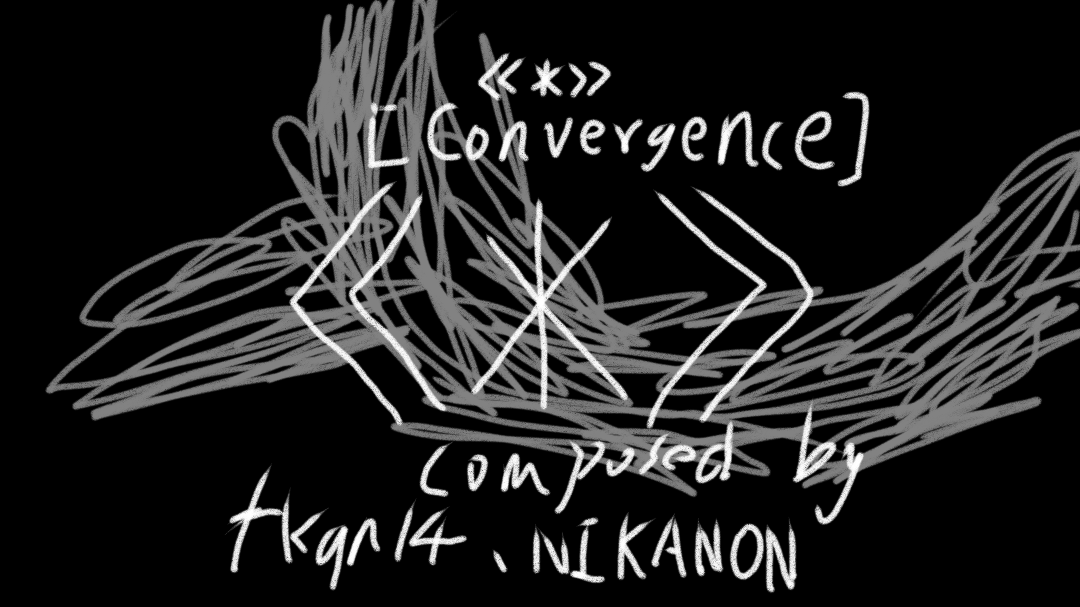 «*»
[Convergence]
«*»
composed by
tkqn14、NIKANON